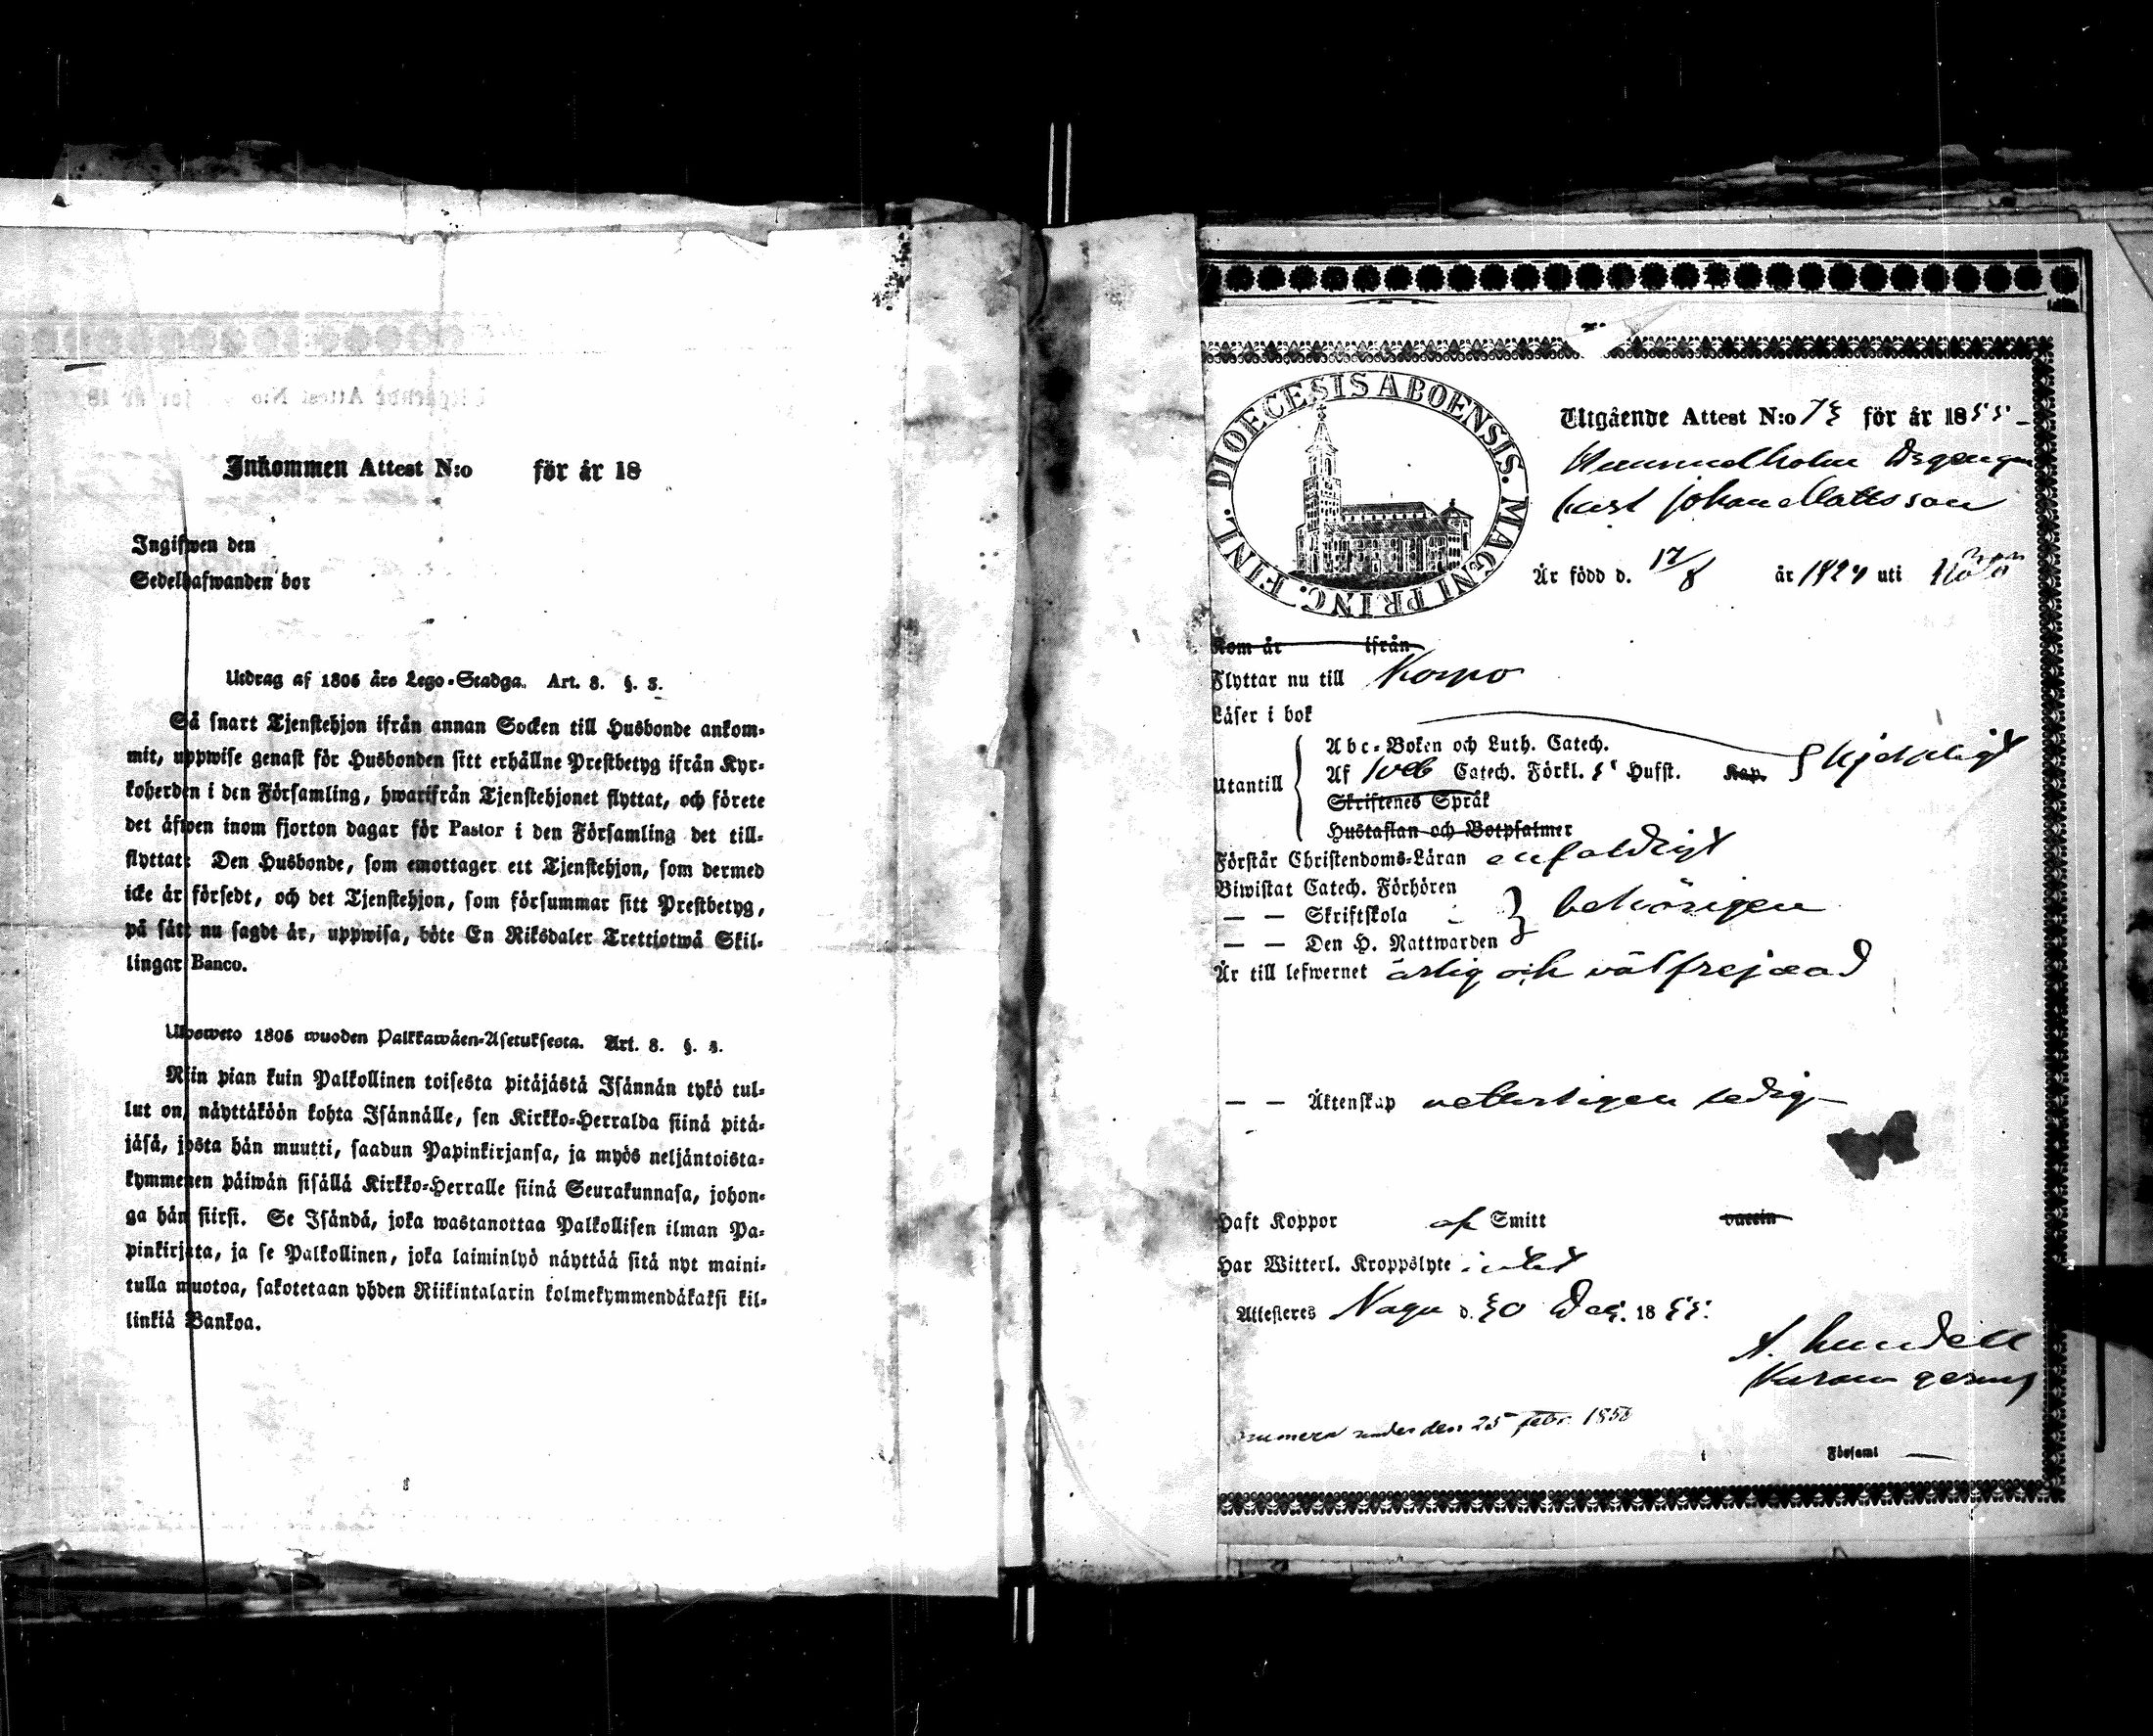 Inkommen Attest N:o för år 18
Ingifwen den
Sedelhafwanden bor
Utdrag af 1805 års Lego-Stadga. Art. 8. §. 3.
Så snart Tjenstehjon ifrån annan Socken till Husbonde ankom-
mit, uppwise genast för Husbonden sitt erhållne Prestbetyg ifrån Kyr-
koherden i den Församling, hwarifrån Tjenstehjonet flyttat, och förete
det äfwen inom fjorton dagar för Pastor i den Församling det till-
flyttat: Den Husbonde, som emottager ett Tjenstehjon, som dermed
icke är försedt, och det Tjenstehjon, som försummar sitt Prestbetyg,
på sätt nu sagdt är, uppwisa, böte En Riksdaler Trettiotwå Skil-
lingar Banco.
Ulosweto 1805 wuoden Palkkawäen-Asetuksesta. Art. 8. §. 3.
Niin pian kuin Palkollinen toisesta pitäjästä Isännän tykö tul-
lut on, näyttäköön kohta Isännälle, sen Kirkko-Herralda siinä pitä-
jäsä, josta hän muutti, saadun Papinkirjansa, ja myös neljäntoista-
kymmenen päiwän sisällä Kirkko-Herralle siinä Seurakunnasa, johon-
ga hän siirsi. Se Isändä, joka wastanottaa Palkollisen ilman Pa-
pinkirjata, ja se Palkollinen, joka laiminlyö näyttää sitä nyt maini-
tulla muotoa, sakotetaan yhden Riikintalarin kolmekymmendäkaksi kil-
linkiä Bankoa.
DIOECESIS ABOENSIS. MAGNI PRINC. FINL.
Utgående Attest N:o 73 för år 1855
Hummelholm Drgengn
Carl Johan Mattsson
Är född d. 17/8 år 1824 uti Nötö
Kom år ifrån
Flyttar nu till Korpo
Läser i bok
Abc-Boken och Luth. Catech.
Utantill Af Web Catech. Förkl. 5 Husst. Kap. skjeligt
Skriftenes Språk
Hustaflan och Botpsalmer
Förstår Christendoms-Läran enfaldigt
Biwistat Catech. Förhören
— — Skriftskola behörigen
— — Den H. Nattwarden
Är till lefwernet ärlig och välfrejdad
— — Äktenskap veterligen ledig
Haft Koppor af Smitt vaccin
Har Witterl. Kroppslyte intet
Attesteres Nagu d. 30 Dec. 1855.
A. Lundell
numera under den 25 febr. 1856
i Församl